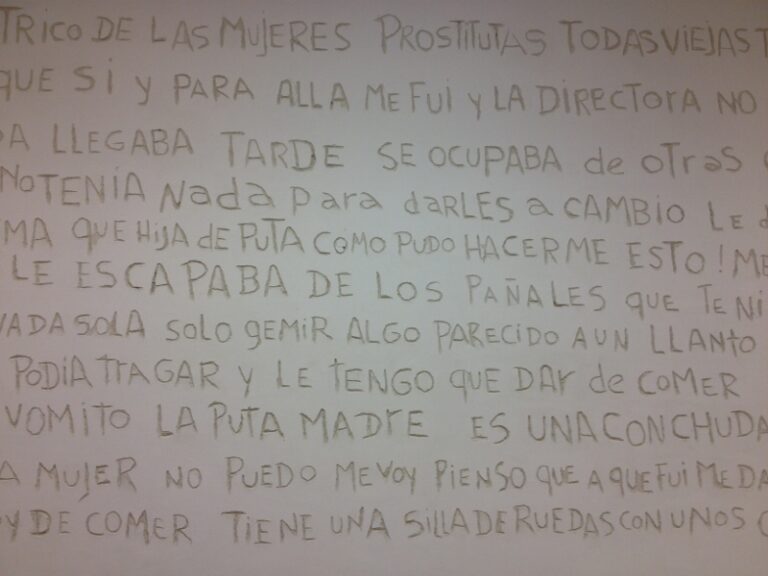 TRICO DE LAS MUJERES PROSTITUTAS TODAS VIEJAS T
QUE SI Y PARA ALLA ME FUI Y LA DIRECTORA NO
DA LLEGABA TARDE SE OCUPABA de OTras
NO TENIA Nada Para darLES a CAMBIO LE d
MA QUE HIJA dE PUTA COMO PUDO HACERME ESTO! ME
LE ESCAPABA DE LOS PAÑALES QUE TENI
NADA SOLA SOLO GEMIR ALGO PARECIDO A UN LLANTO
PODIA TRAGAR Y LE TENGO QUE DAR de COMER
VOMITO LA PUTA MADRE ES UNA CONCHUDA
A MUJER NO PUEDO ME VOY PIENSO QUE A QUE FUI ME DA
Y DE COMER TIENE UNA SILLA DE RUEDAS CON UNOS